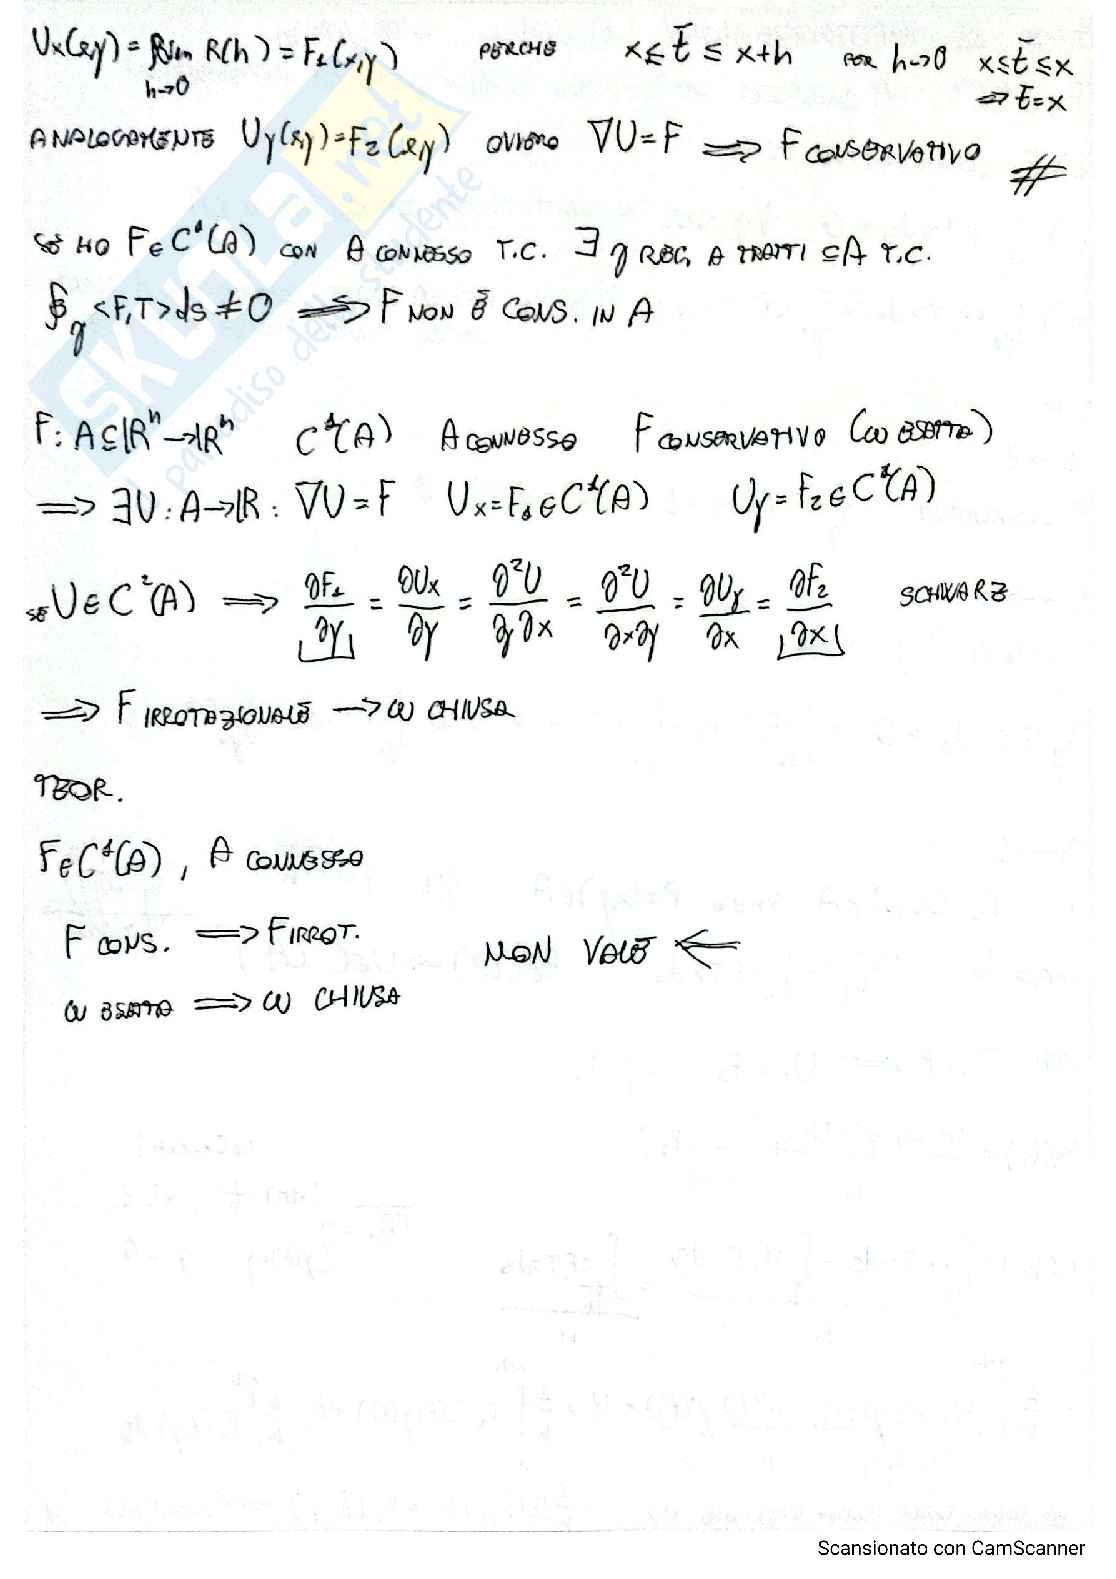 Ux(x,y) = lim R(h) = F1(x,y) PERCHÉ x ≤ t̄ ≤ x+h PER h→0 x ≤ t̄ ≤ x
h→0 ⇒ t̄ = x
ANALOGAMENTE Uy(x,y) = F2(x,y) OVVERO ∇U = F ⟹ F CONSERVATIVO #
SE HO F ∈ C¹(A) CON A CONNESSO T.C. ∃ γ REG. A TRATTI ⊆ A T.C.
∮γ <F,T> ds ≠ 0 ⟹ F NON È CONS. IN A
F: A ⊆ ℝⁿ → ℝⁿ C¹(A) A CONNESSO F CONSERVATIVO (ω ESATTA)
⟹ ∃U: A → ℝ : ∇U = F Ux = F1 ∈ C¹(A) Uy = F2 ∈ C¹(A)
SE U ∈ C²(A) ⟹ ∂F1/∂y = ∂Ux/∂y = ∂²U/∂y∂x = ∂²U/∂x∂y = ∂Uy/∂x = ∂F2/∂x SCHWARZ
⟹ F IRROTAZIONALE → ω CHIUSA
TEOR.
F ∈ C¹(A), A CONNESSO
F CONS. ⟹ F IRROT. NON VALE ⟸
ω ESATTA ⟹ ω CHIUSA
SKUOLA.net
il paradiso dello studente
Scansionato con CamScanner